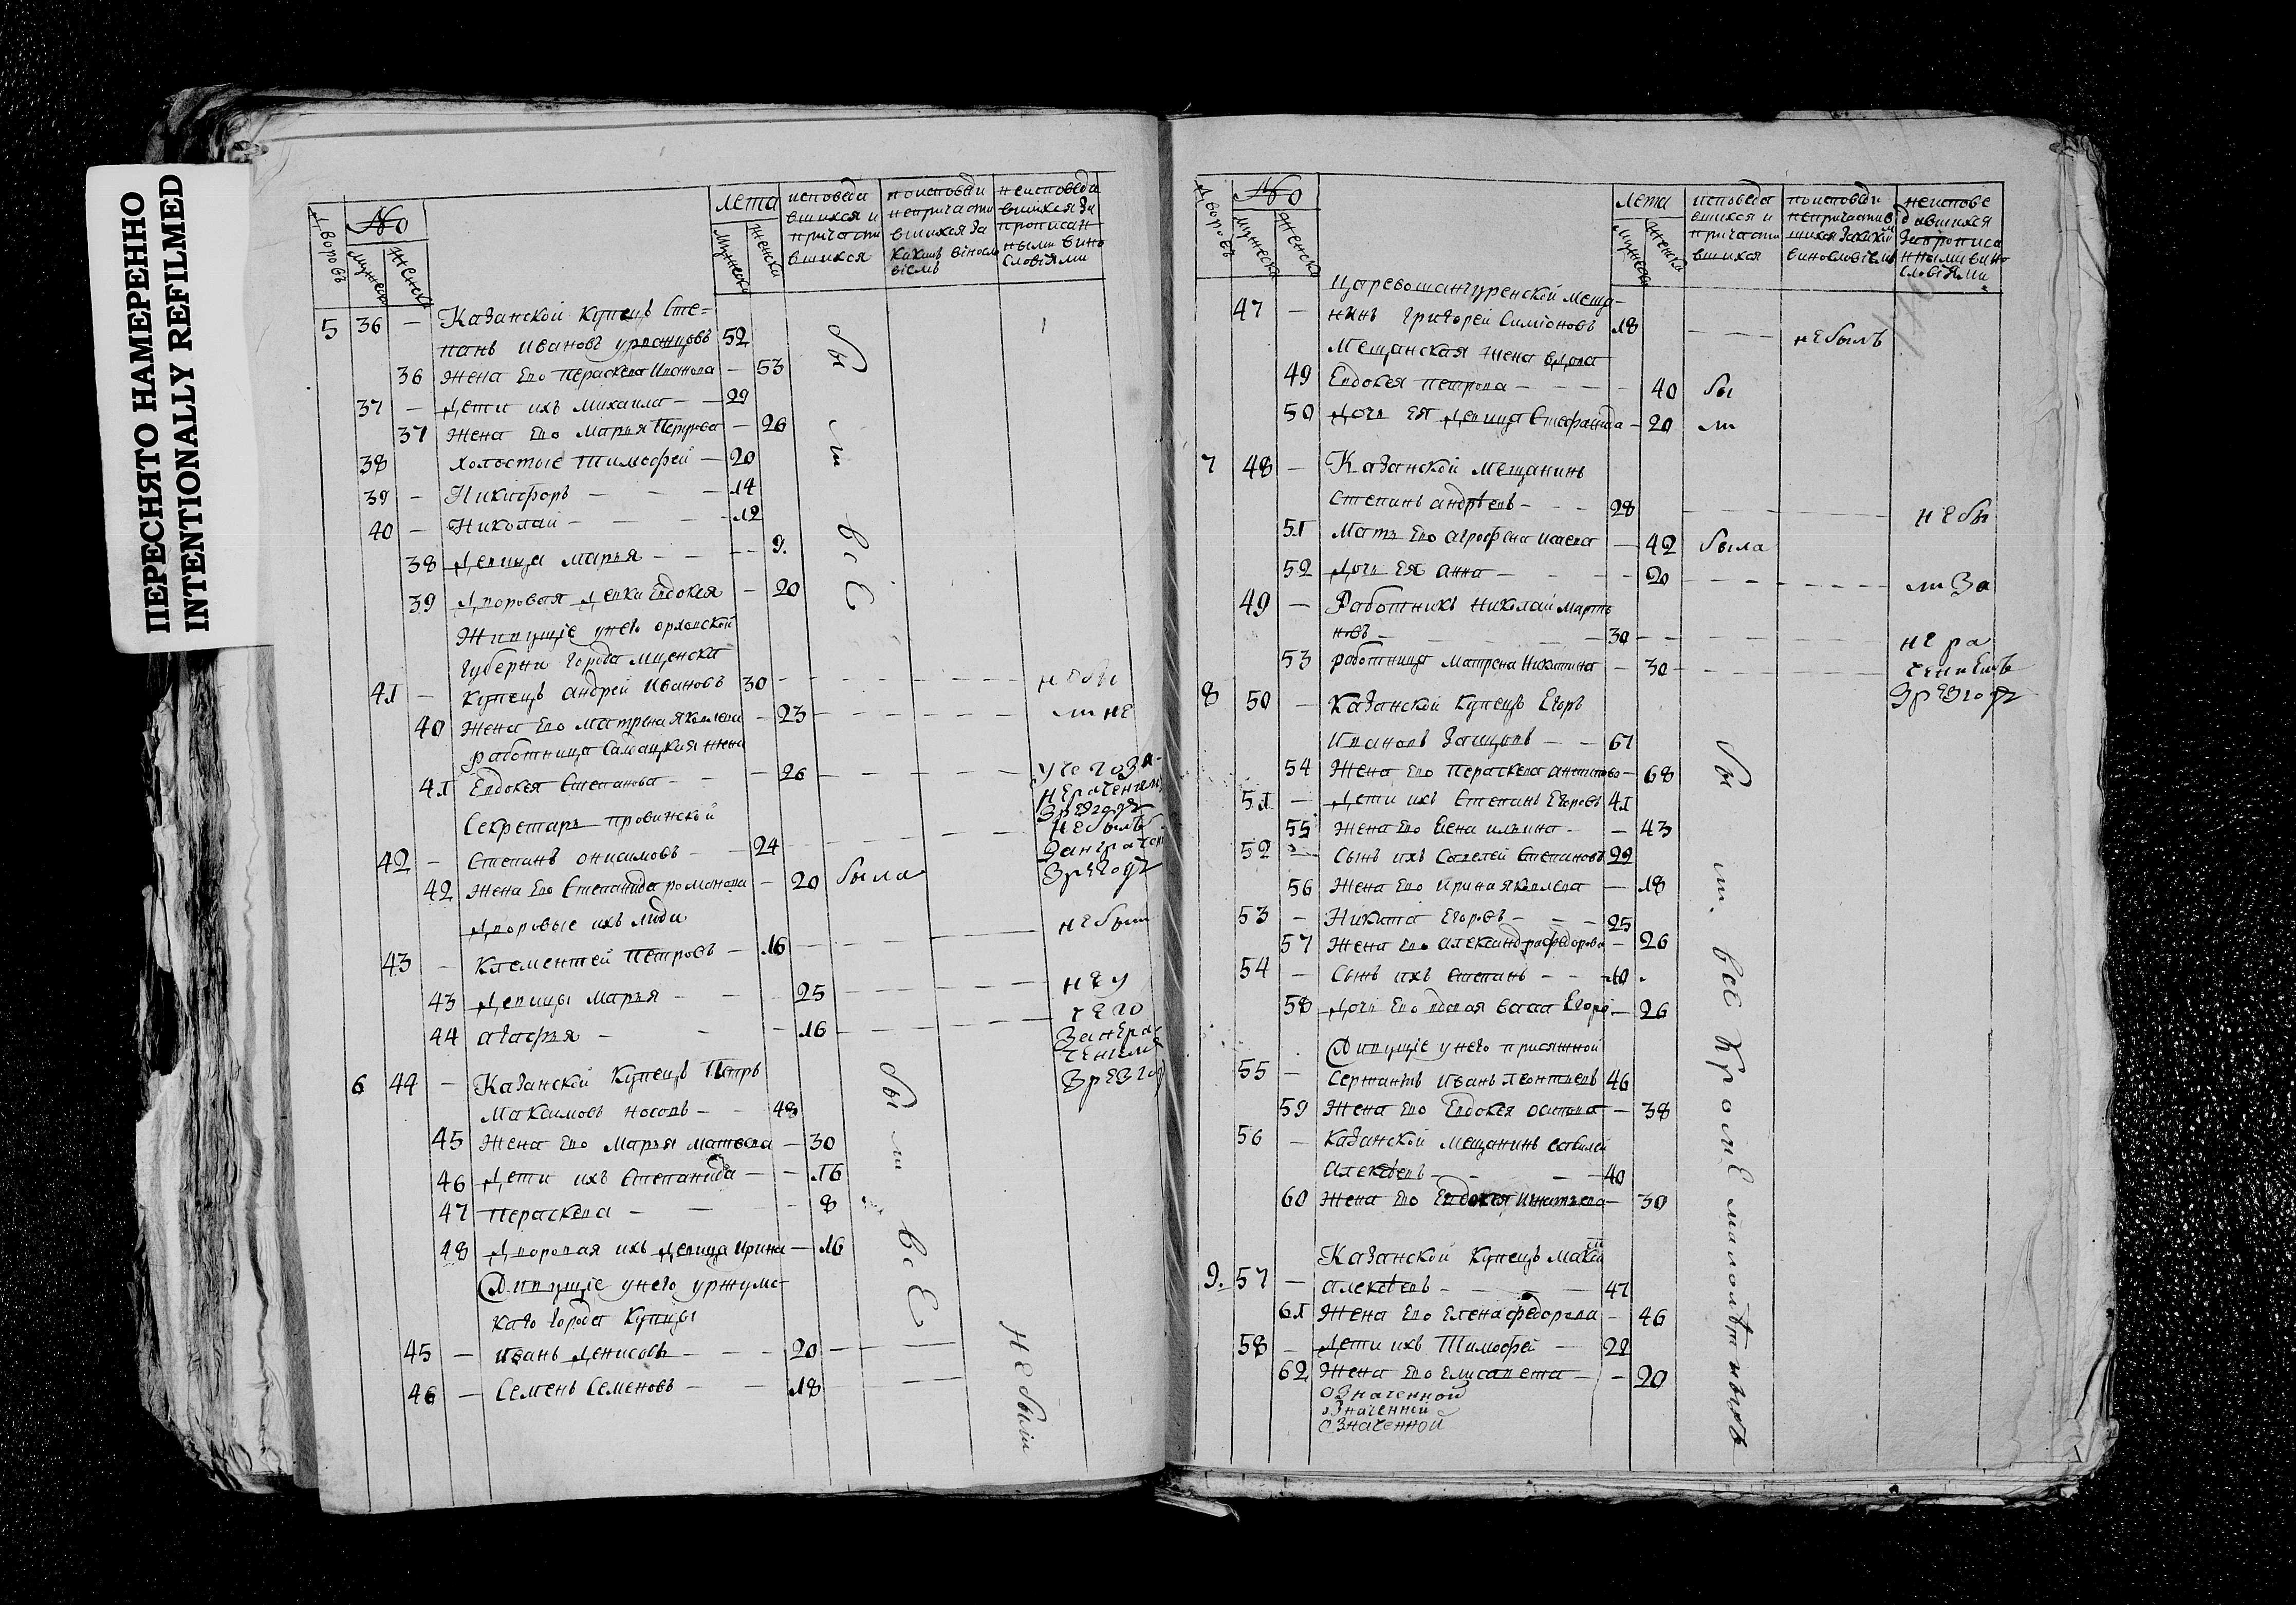 ПЕРЕСНЯТО НАМЕРЕННО
INTENTIONALLY REFILMED
дворовъ
No
мужеска
женска
лета
мужеска
женска
исповеда
вшихся и
причасти
вшихся
поисповеди
непричасти
вшихся за
какимъ виносло
віемъ
неисповеда
вшихся за
прописан
ными вино
словіями
5 36 — Казанской купецъ Сте=
панъ Ивановъ 52
36 жена ево Пераскева Иванова — 53
37 — дети ихъ Михаила — 29
37 жена ево Марья — 26
38 холостые Тимофей — 20
39 — Никифоръ — 14
40 — Николай — 12
38 девица Марья — 9.
39 дворовая девка Евдокея — 20
были все
Живущіе унего орловской
губерни города мценска
41 — купецъ андрей Ивановъ 30 — небы
40 жена ево матрена Яковлева — 23 — ли не
работница жена
41 Евдокея Степанова — 26
Секретарь
42 — Степанъ онисимовъ — 24 — небылъ
42 жена ево Степанида романова — 20 была
дворовые ихъ люди
43 — Клементей Петровъ — 16 — небыли
43 девицы Марья — 25 — неу
44 агафья — 16 — чего
занера-
чениемъ
6 44 — Казанской купецъ Петръ
Максимовъ носовъ — 48
45 жена ево Марья матвеева — 30
46 дети ихъ Степанида — 16
47 Пераскева — 8
48 дворовая ихъ девица Ирина — 16
были все
Живущіе унего уржумс
каго города купцы
45 — иванъ денисовъ — 20
46 — Семенъ Семеновъ — 18
небыли
дворовъ
No
мужеска
женска
лета
мужеска
женска
исповеда
вшихся и
причасти
вшихся
поисповеди
непричастив
шихся закаким
винословіемъ
неиспове
давшихся
запрописа
нными вино
словіями
Царевошангуренской меща-
47 — нинъ григорей Симіоновъ 18 — небылъ
Мещанская жена вдова
49 Евдокея петрова — 40 бы
50 дочь ея девица Стефанида — 20 ли
7 48 — Казанской мещанинъ
Степанъ андреевъ — 28 — небы
51 Мать ево агрофена — 42 была
52 дочь ея анна — 20 — ли за
49 — Работникъ николай марты
новъ — 30 — нера
53 работница матрена Никитина — 30 — чениемъ
8 50 — Казанской купецъ Егоръ
Ивановъ — 67
54 жена ево Пераскева — 68
51 — дети ихъ Степанъ Егоровъ 41
55 жена ево Елена ильина — 43
52 — сынъ ихъ Савелей Степановъ 22
56 жена ево Ирина яковлева — 18
53 — Никита Егоровъ — 25
57 жена ево александра федорова — 26
54 — сынъ ихъ Степанъ — 10
58 дочь ево — 26
Живущіе унего присяжной
55 — Сержантъ Иванъ леонтьевъ 46
59 жена ево Евдокея осипова — 38
56 — Казанской мещанинъ
алексеевъ — 40
60 жена ево Евдокея игнатьева — 30
были все кроме малолетныхъ
Казанской купецъ Максим
9. 57 — алексеевъ — 47
61 жена ево елена федорова — 46
58 — дети ихъ Тимофей — 22
62 жена ево елисавета — 20
означенной
означенной
означенной